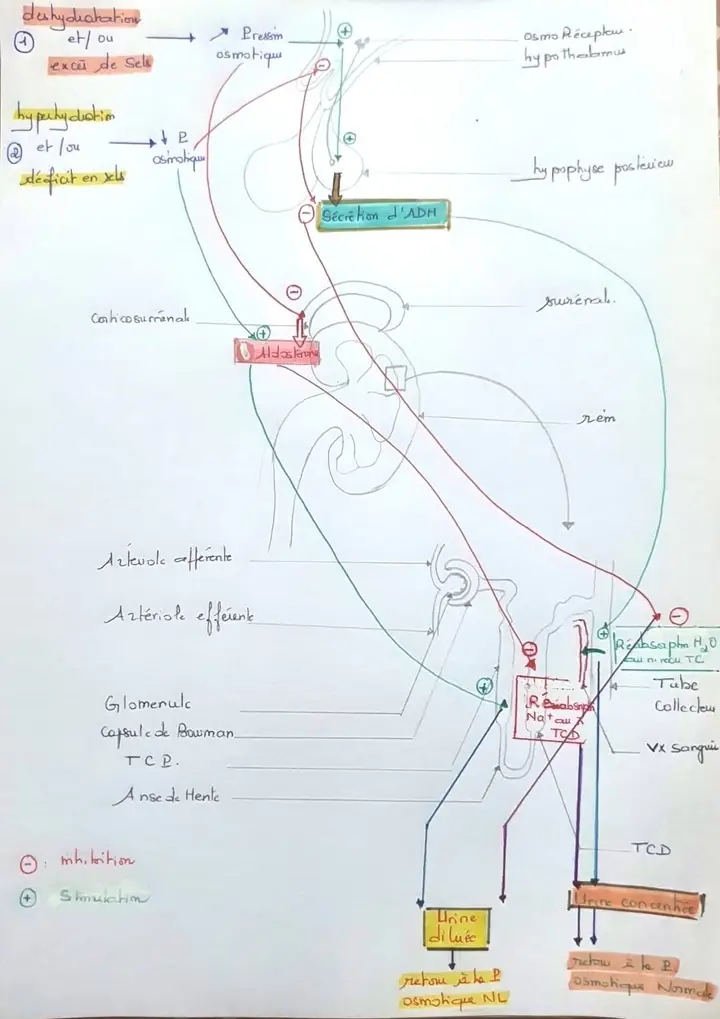 deshydratation
① et/ou
excès de Sels
↗ Pression
osmotique
+
-
osmo Récepteur.
hypothalamus
hyperhydratation
② et/ou
déficit en sels
↓ P
osmotique
+
hypophyse postérieure
-
Sécrétion d'ADH
-
corticosurrénale
surrénale.
+
Aldostérone
rein
Artériole afférente
Artériole efférente
-
+
Réabsorption H2O
au niveau TC
-
Tube
collecteur
+
Réabsorption
Na+ au
TCD
Glomérule
Capsule de Bowman
TCP.
Anse de Henle
Vx sanguin
TCD
- : inhibition
+ Stimulation
Urine concentrée
Urine
diluée
retour à la P
osmotique NL
retour à la P
osmotique Normale